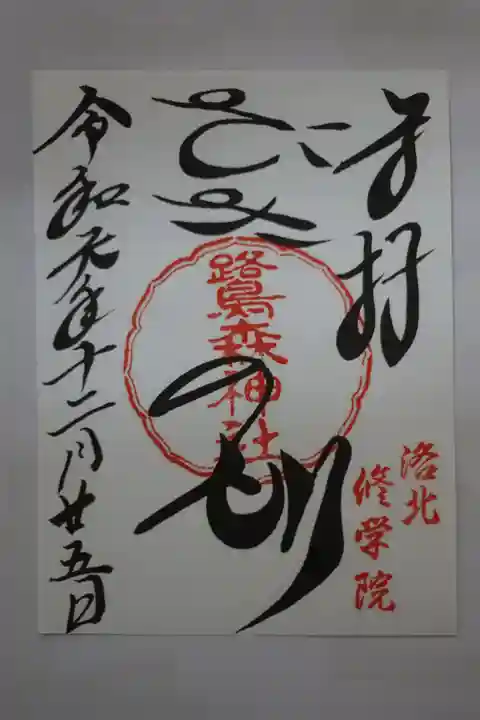 奉拝
さぎのもり
鷺森神社
洛北
修学院
令和元年十二月廿五日